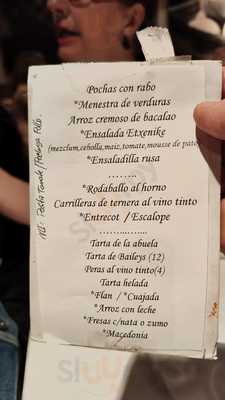 Pochas con rabo
*Menestra de verduras
Arroz cremoso de bacalao
*Ensalada Etxenike
(mezclum,cebolla,maiz,tomate,mousse de pato
*Ensaladilla rusa
........
*Rodaballo al horno
Carrilleras de ternera al vino tinto
*Entrecot / Escalope
............
Tarta de la abuela
Tarta de Baileys (12)
Peras al vino tinto(4)
Tarta helada
*Flan / *Cuajada
*Arroz con leche
*Fresas c/nata o zumo
*Macedonia
Pasta Tomate